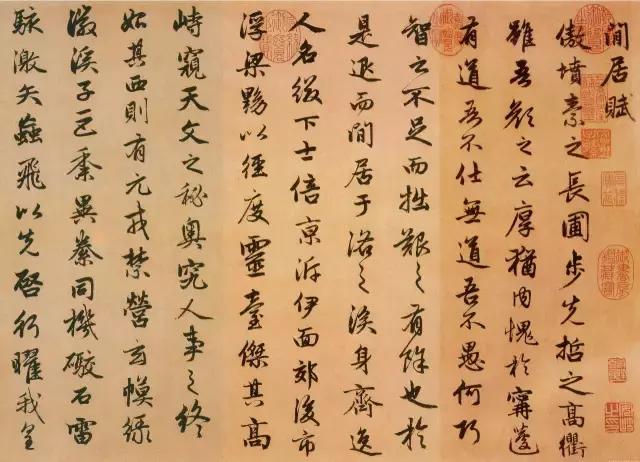 閒居賦
傲墳素之長圃步先哲之高衢
雖吾顏之云厚猶內愧於寗蘧
有道吾不仕無道吾不愚何巧
智之不足而拙艱之有餘也於
是退而閒居于洛之涘身齊逸
人名綴下士倍京泝伊面郊後市
浮梁黝以徑度靈臺傑其高
峙窺天文之秘奧究人事之終
始其西則有元戎禁營玄幙綠
徽溪子巨黍異絭同機礮石雷
駭激矢蝱飛以先啓行曜我皇